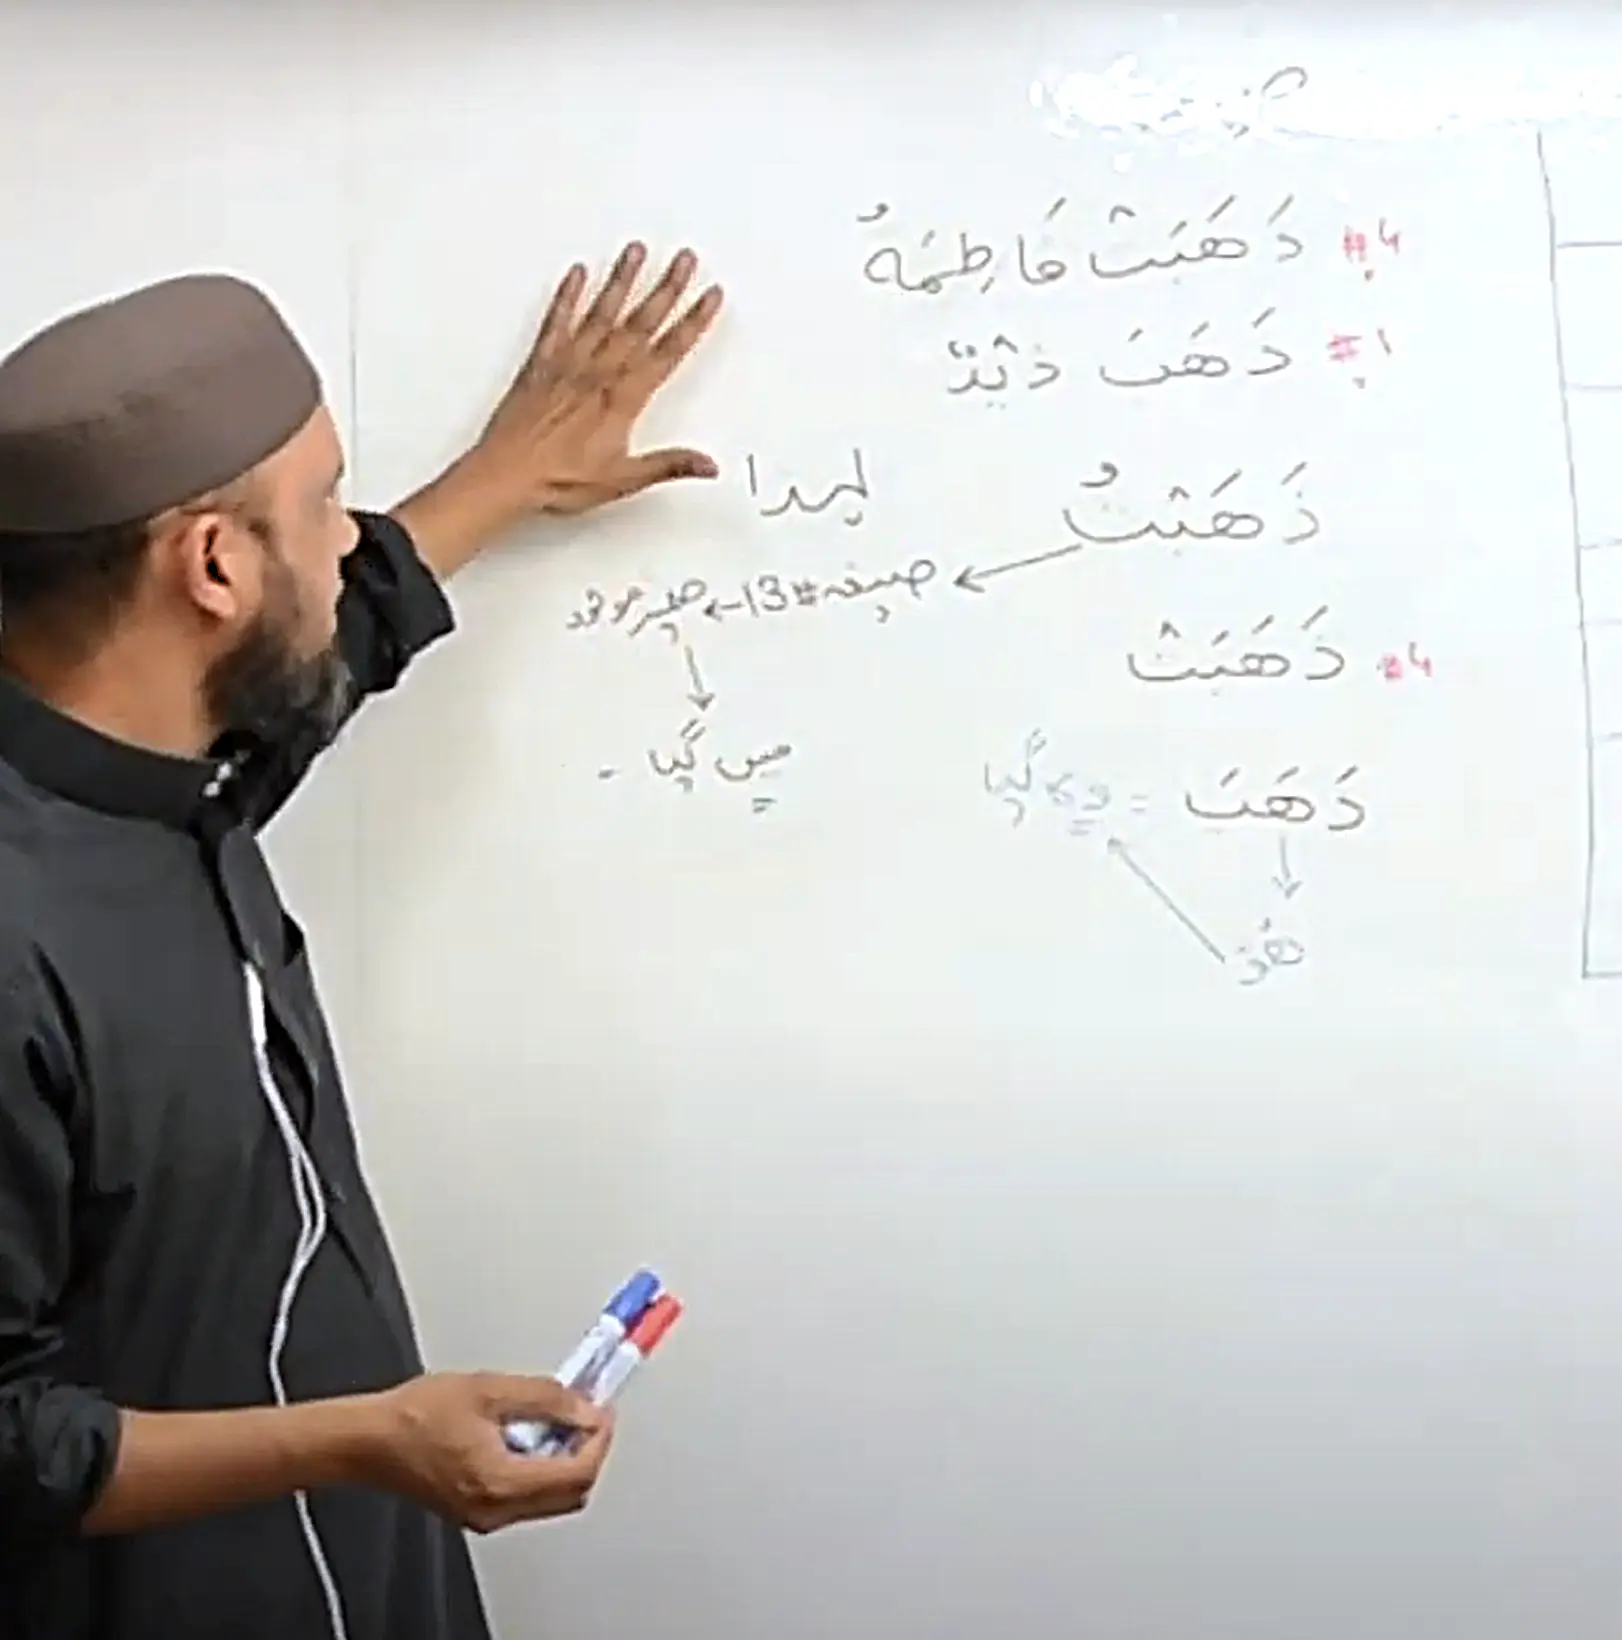 #4 ذَهَبَتْ فَاطِمَةُ
#1 ذَهَبَ زَيْدٌ
ذَهَبْتُ لہذا
صیغہ #13 → ضمیر موجود
ذَهَبَتْ #4
میں گیا -
ذَهَبَ = وہ گیا
هُوَ